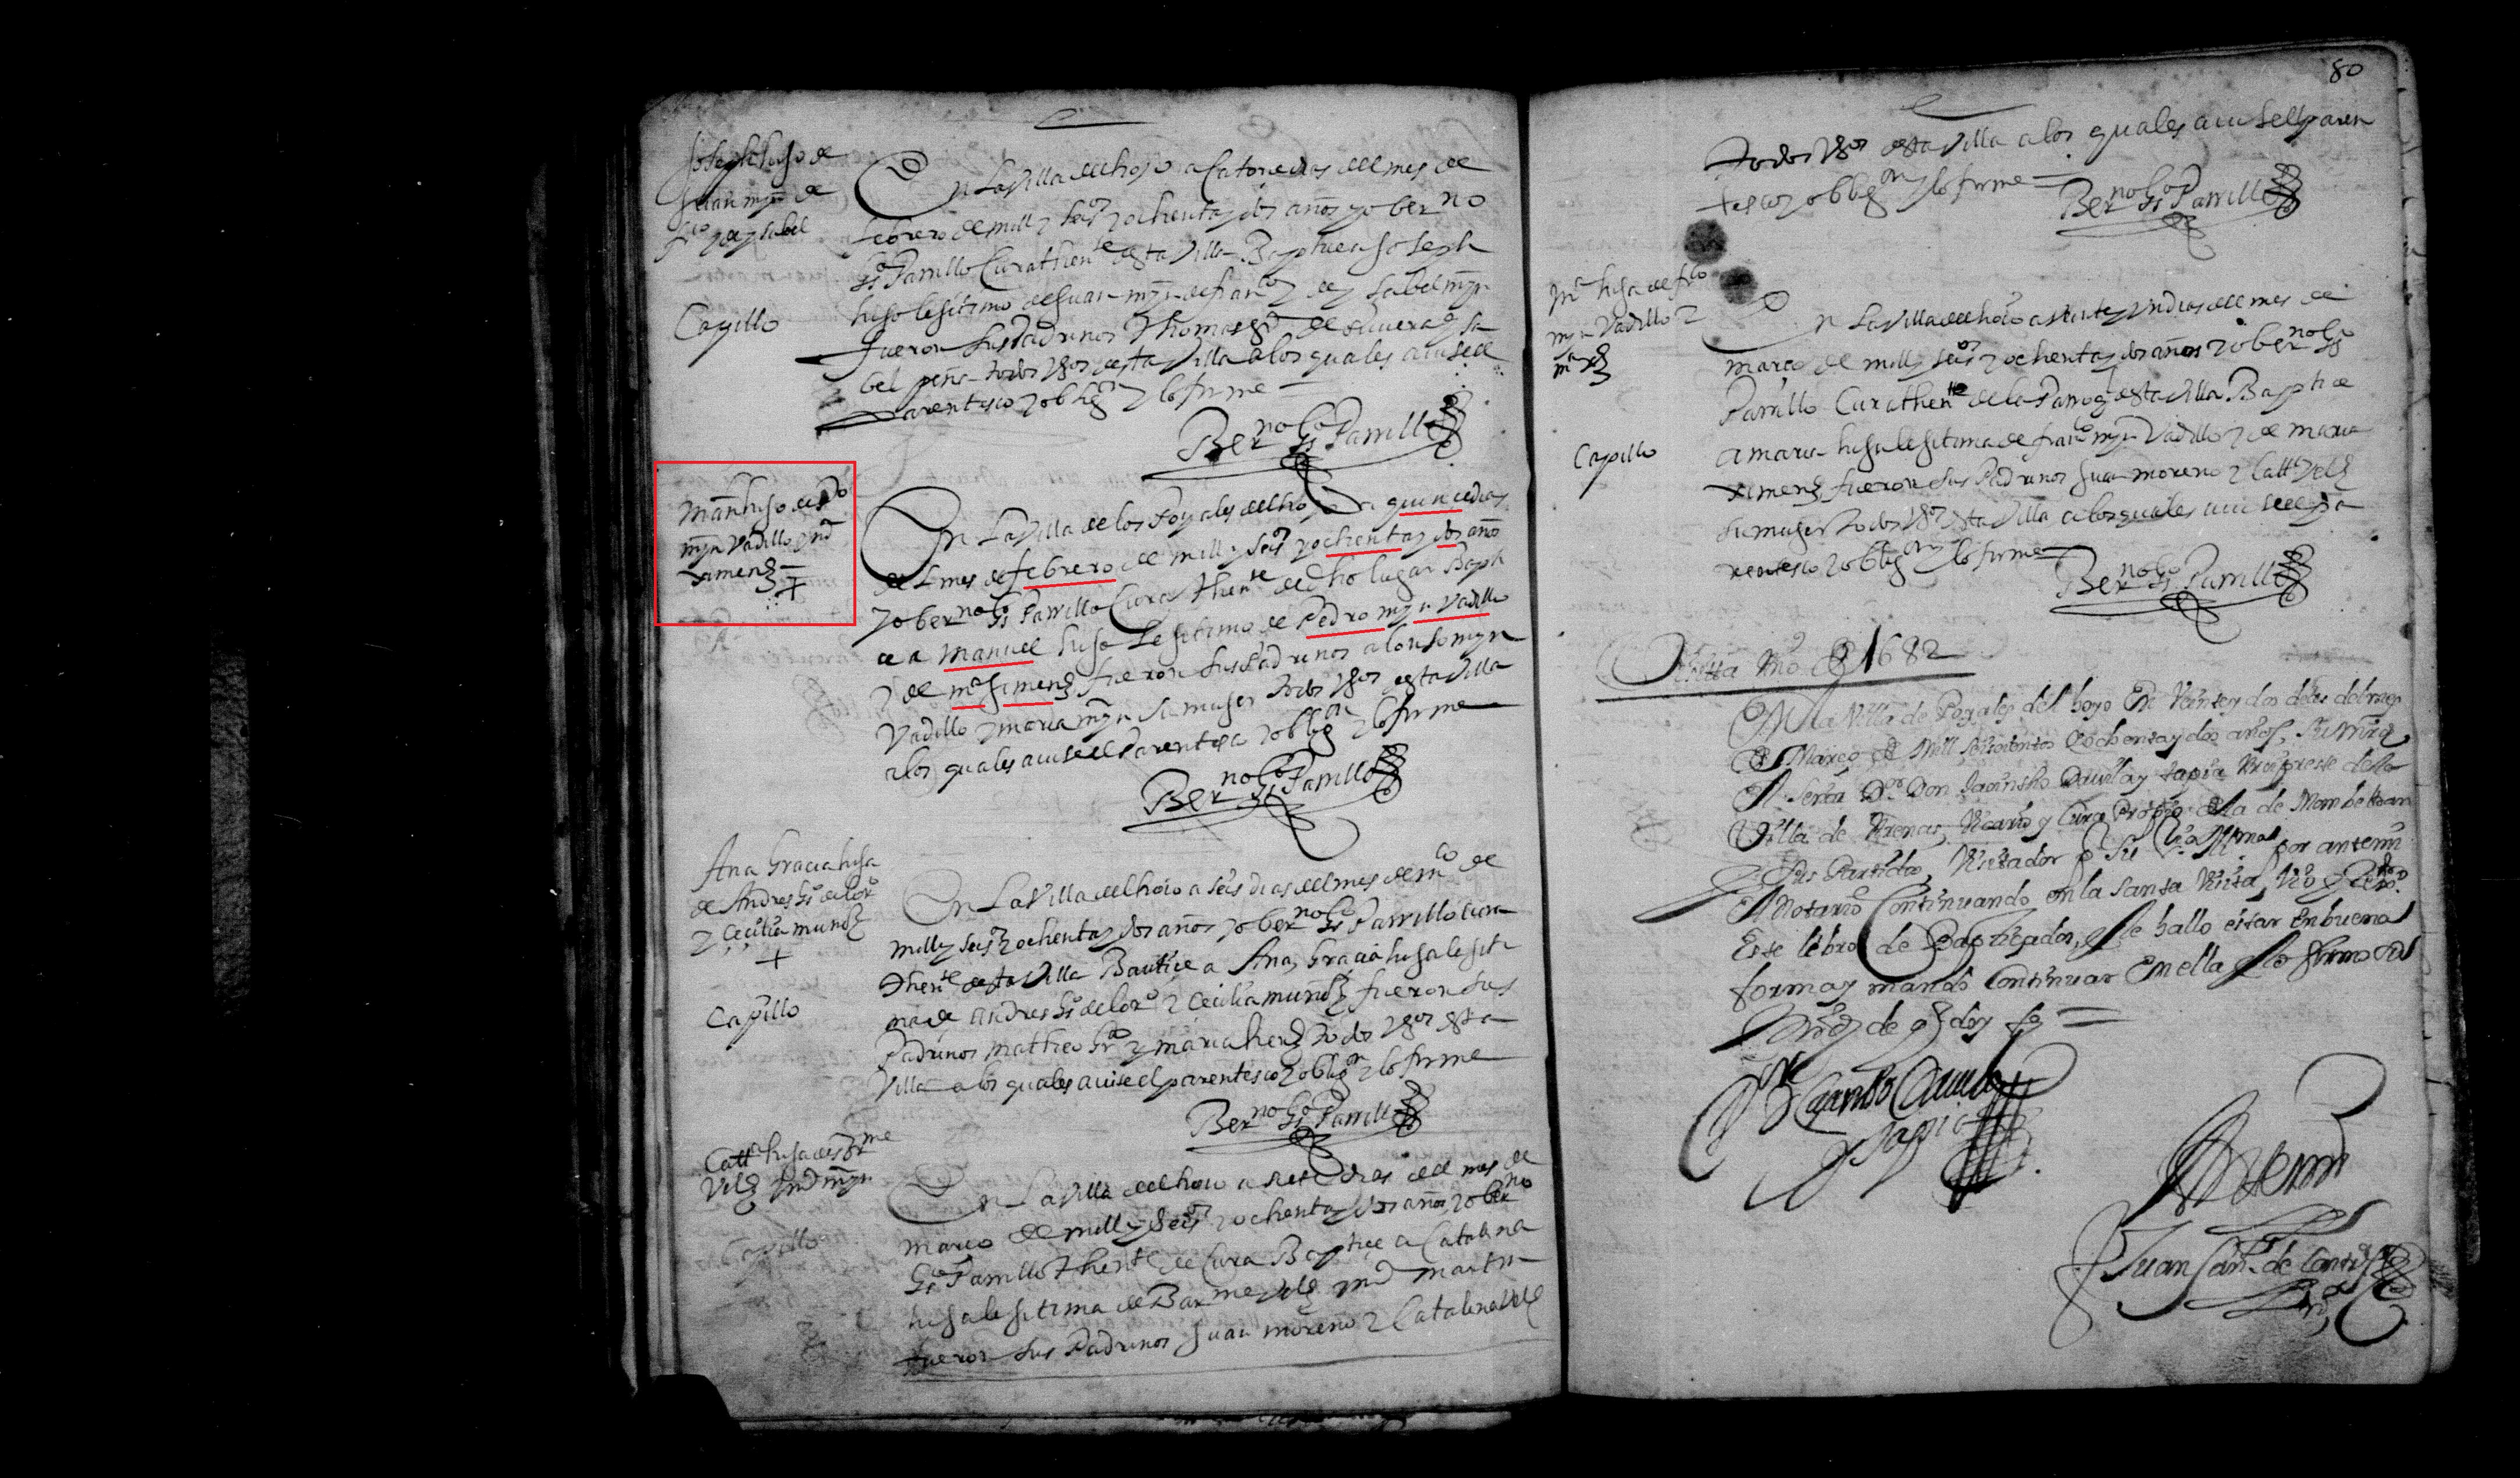 Joseph hijo de
Juan mrn de
fco y de ysabel
En La Villa del hoyo a Catorce dias del mes de
febrero de mill y seisos y ochenta y dos años yo berno
Gs Parrillo Cura thente desta Villa Baptice a Joseph
hijo lesitimo de Juan mrn de franco y de ysabel mrn
fueron sus Padrinos Thomas de ysa
bel peña todos vos desta Villa a los quales avise el
parentesco y obligon y lo firme
Capillo
Berno Gs Parrillo
Man hijo de Po
mrn Vadillo y ma
ximenz
En La Villa de los Poyales del hoyo a quince dias
del mes de febrero de mill y seisos y ochenta y dos años
yo berno Gs Parrillo Cura thente de dho lugar Bapti
ce a manuel hijo Lesitimo de Pedro mrn Vadillo
y de ma Jimenz fueron sus Padrinos alonso mrn
Vadillo y maria mrn su muger todos vos desta Villa
a los quales avise el Parentesco y obligon y lo firme
Berno Gs Parrillo
Ana Gracia hija
de Andres Gs de lor
y Cecilia munoz
En La Villa del hoio a seis dias del mes de mco de
mill y seisos y ochenta y dos años yo berno Gs Parrillo Cura
thente desta Villa Bautice a Ana Gracia hija lesiti
ma de Andres Gs de lor y Cecilia muñoz fueron sus
Padrinos matheo y maria herz todos vos desta
Villa a los quales avise el parentesco y obligon y lo firme
Capillo
Berno Gs Parrillo
Catta hija de Bme
Velz y md mrn
En La Villa del hoio a siete dias del mes de
março de mill y seisos y ochenta y dos años yo berno
Gs Parrillo thente de Cura Baptice a Catalina
hija lesitima de Barme Velz y md martin
fueron sus Padrinos Juan moreno y Catalina Velz
Capillo
80
todos vos desta Villa a los quales avise el paren
tesco y obligon y lo firme
Berno Gs Parrillo
Ma hija de fco
mrn Vadillo y
ma xz
En La Villa del hoio a veinte y un dias del mes de
março de mill y seisos y ochenta y dos años yo berno Gs
Parrillo Cura thente de la Parroq desta Villa Baptice
a maria hija lesitima de franco mrn Vadillo y de maria
ximenz fueron sus Padrinos Juan moreno y Catta Velz
su muger todos vos desta Villa a los quales avise el pa
rentesco y obligon y lo firme
Capillo
Berno Gs Parrillo
Visita Año de 1682
En la Villa de Poyales del hoyo En Veinte y dos dias del mes
de Março de Mill seiscientos y ochenta y dos años, Su mrd
el Señor Dr Don Jacintho Davila y tapia de la
Villa de Arenas, Vicario y Cura Propio de la de Mombeltran
y Su Partido, Visitador por Su Illma por ante mi
el Notario Continuando en la Santa Visita, Vio
este libro de Baptizados, y le hallo estar en buena
forma y mando Continuar en ella y lo firmo su
mrd de q doy fe
Jacintho Davila
y Tapia
Ante mi
Juan